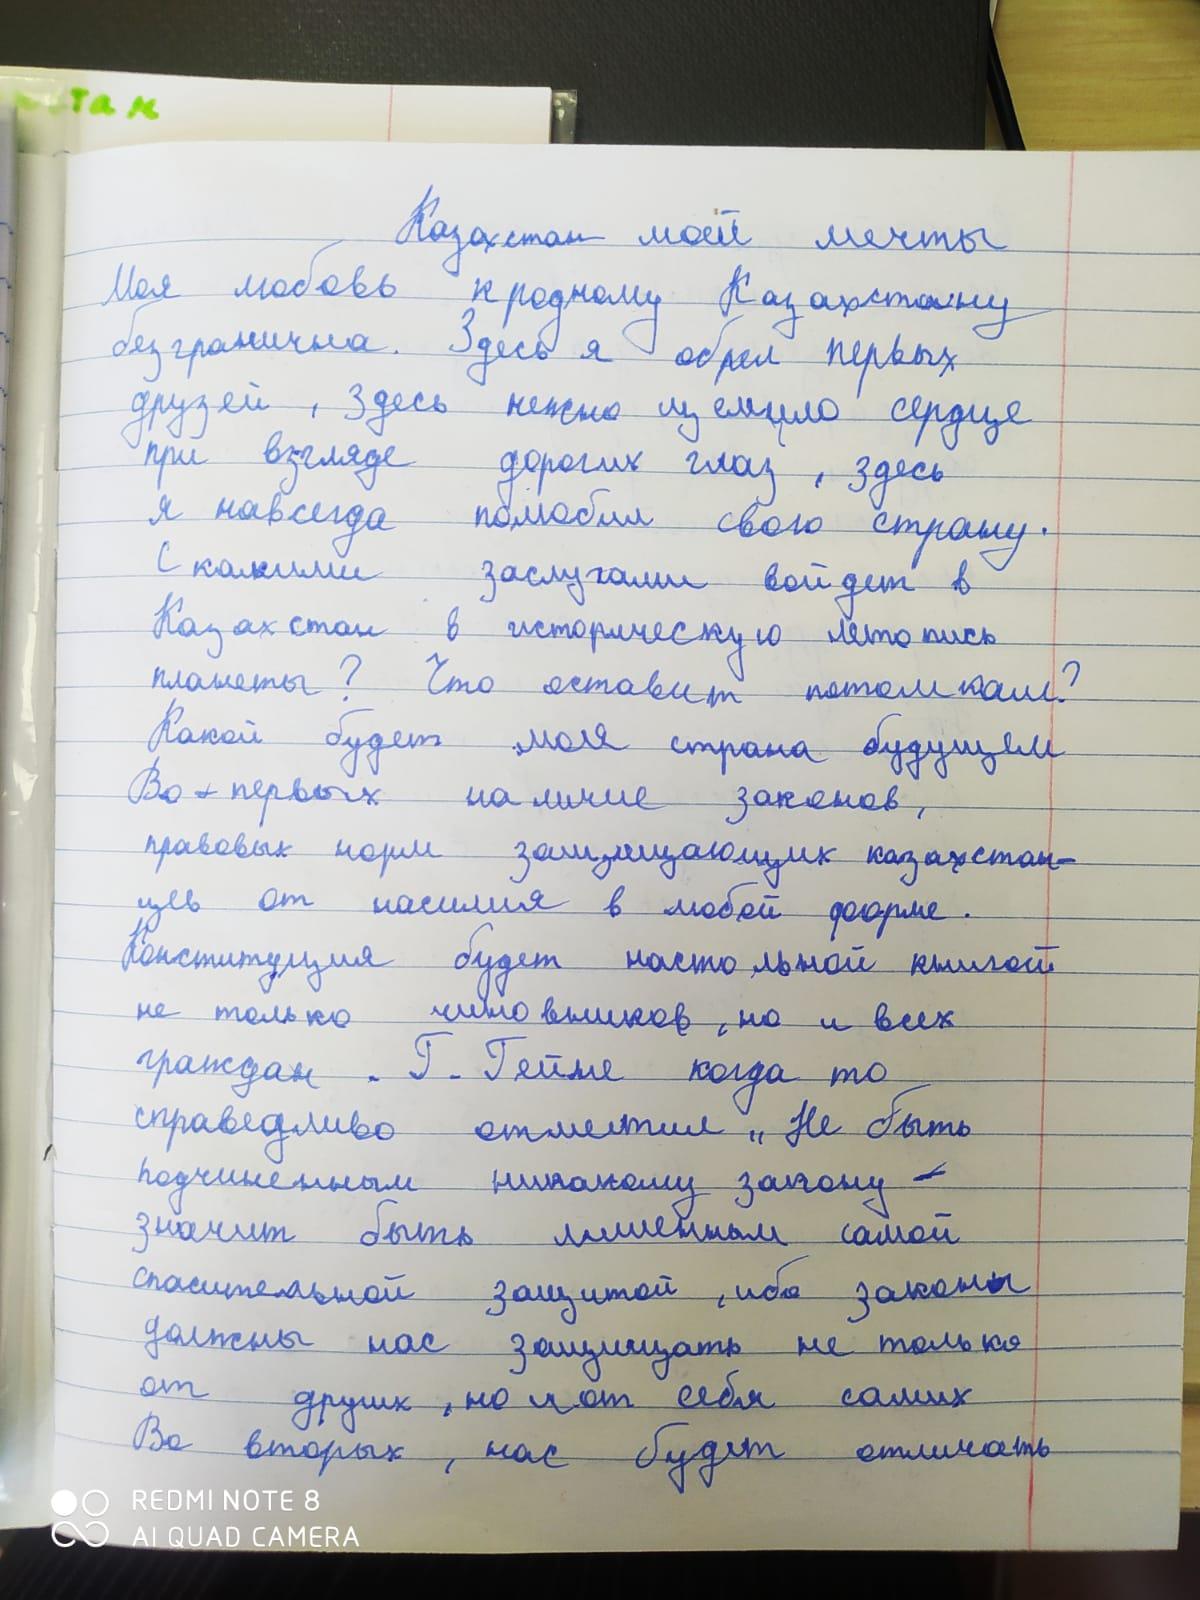 стан
Казахстан моей мечты
Моя любовь к родному Казахстану
безгранична. Здесь я обрел первых
друзей, здесь нежно щемило сердце
при взгляде дорогих глаз, здесь
я навсегда полюбил свою страну.
С какими заслугами войдет в
Казахстан в историческую летопись
планеты? Что оставит потомкам?
Какой будет моя страна будущем
Во-первых наличие законов,
правовых норм защищающих казахстан-
цев от насилия в любой форме.
Конституция будет настольной книгой
не только чиновников, но и всех
граждан. Г. Гейне когда то
справедливо отметил „Не быть
подчиненным никакому закону -
значит быть лишенным самой
спасительной защитой, ибо законы
должны нас защищать не только
от других, но и от себя самих
Во вторых, нас будет отличать
REDMI NOTE 8
AI QUAD CAMERA